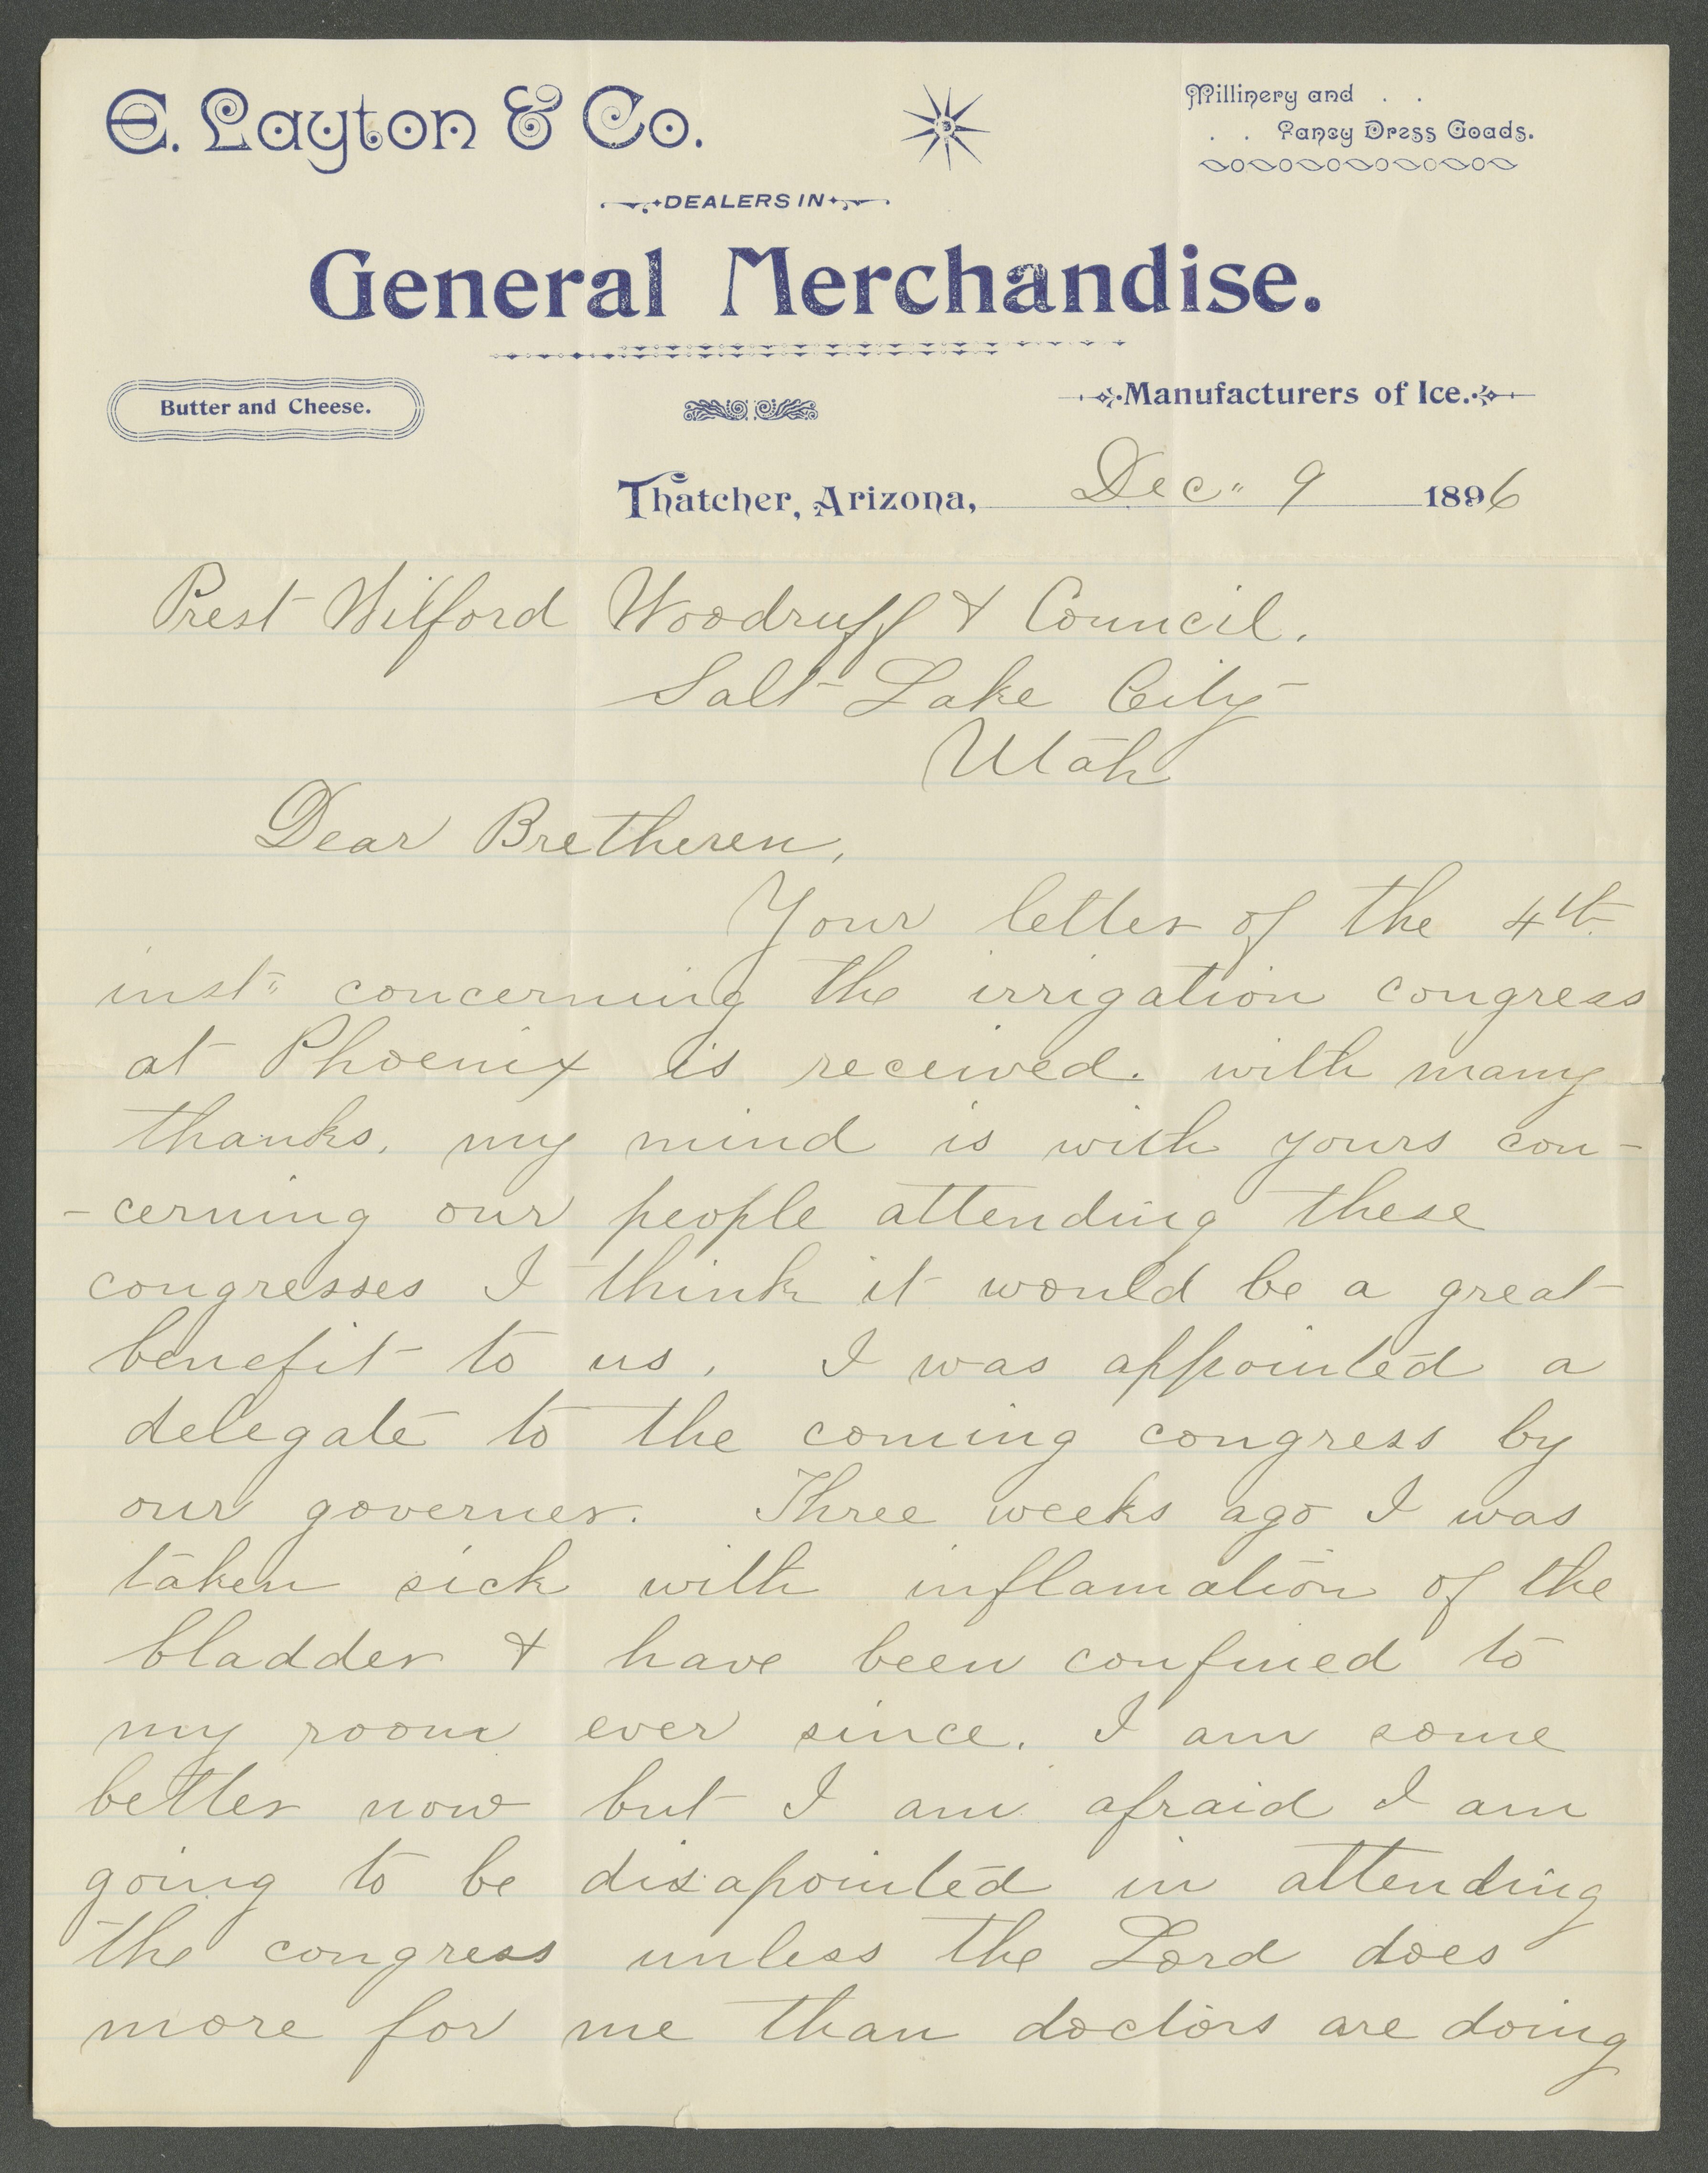 E. Layton & Co.
Millinery and . .
. . Fancy Dress Goods.
DEALERS IN
General Merchandise.
Butter and Cheese.
Manufacturers of Ice.
Thatcher, Arizona, Dec" 9 1896
Prest Wilford Woodruff & Council.
Salt Lake City
Utah
Dear Bretheren,
Your letter of the 4th
inst" concerning the irrigation congress
at Phoenix is received. with many
thanks, my mind is with yours con-
-cerning our people attending these
congresses I think it would be a great
benefit to us. I was appointed a
delegate to the coming congress by
our governer. Three weeks ago I was
taken sick with inflamation of the
bladder & have been confined to
my room ever since. I am some
better now but I am afraid I am
going to be disapointed in attending
the congress unless the Lord does
more for me than doctors are doing